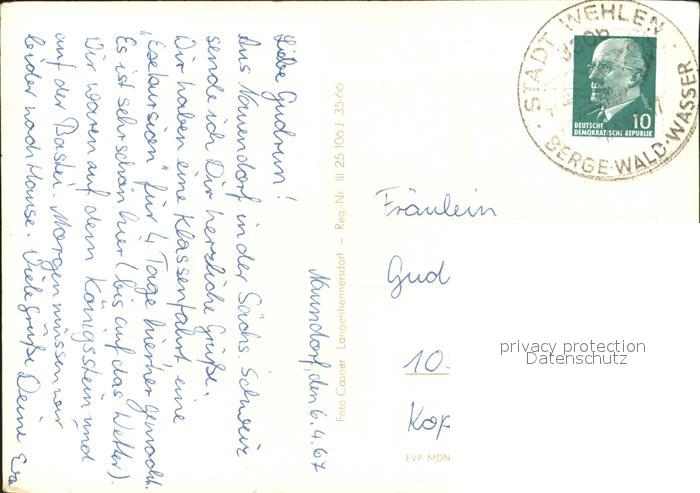 Naundorf, den 6.4.67
Liebe Gudrun!
Aus Naundorf in der Sächs. Schweiz
sende ich Dir herzliche Grüße.
Wir haben eine Klassenfahrt, eine
„Exkursion" für 4 Tage hierher gemacht.
Es ist sehr schön hier (bis auf das Wetter).
Wir waren auf dem Königsstein und
auf der Bastei. Morgen müssen wir
leider nach Hause. Viele Grüße Deine
Foto-Casper Langenhennersdorf – Reg.-Nr. III 25 106 / 35-66
STADT WEHLEN
BERGE·WALD·WASSER
DEUTSCHE
DEMOKRATISCHE REPUBLIK
10
Fräulein
Gud
10
Kop
EVP MDN
privacy protection
Datenschutz